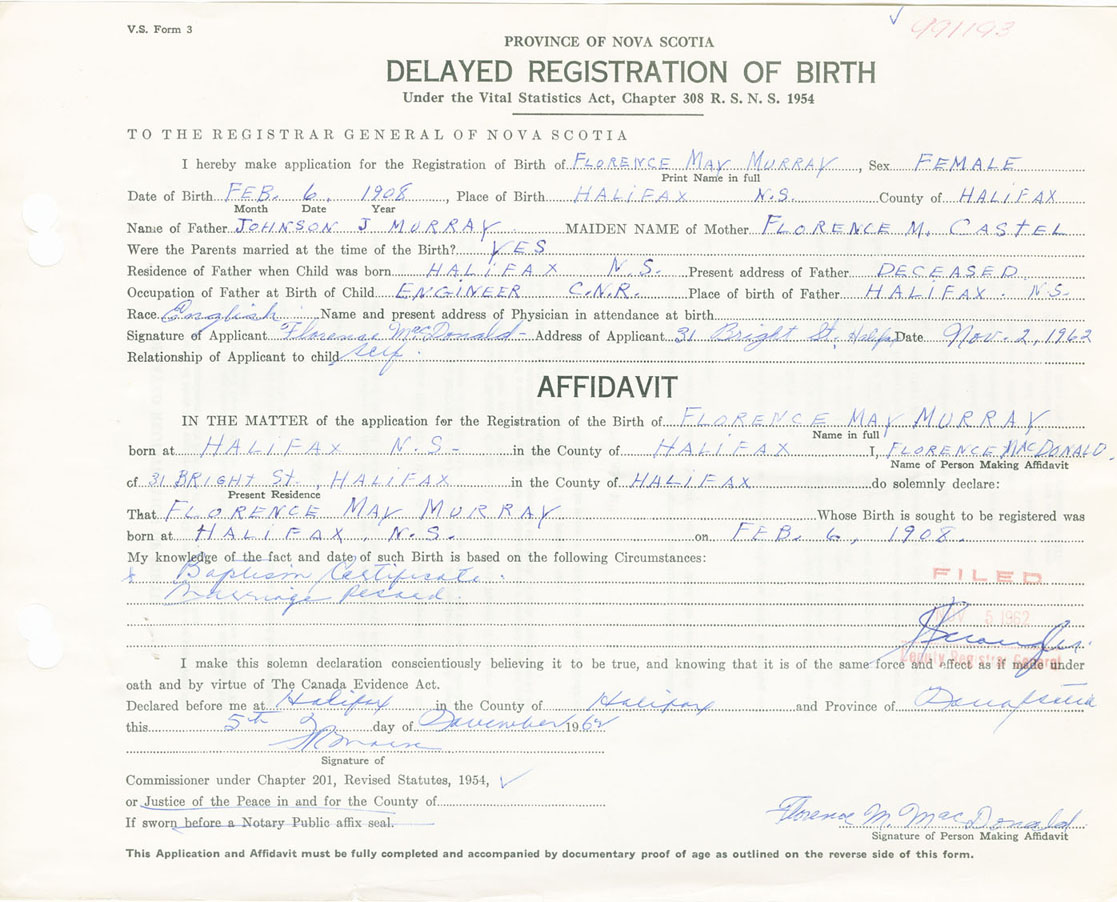 V.S. Form 3
991193
PROVINCE OF NOVA SCOTIA
DELAYED REGISTRATION OF BIRTH
Under the Vital Statistics Act, Chapter 308 R. S. N. S. 1954
TO THE REGISTRAR GENERAL OF NOVA SCOTIA
I hereby make application for the Registration of Birth of FLORENCE MAY MURRAY, Sex FEMALE
Print Name in full
Date of Birth FEB. 6, 1908, Place of Birth HALIFAX N.S. County of HALIFAX
Month Date Year
Name of Father JOHNSON J MURRAY MAIDEN NAME of Mother FLORENCE M. CASTEL
Were the Parents married at the time of the Birth? YES
Residence of Father when Child was born HALIFAX N.S. Present address of Father DECEASED
Occupation of Father at Birth of Child ENGINEER C.N.R. Place of birth of Father HALIFAX. N.S.
Race English Name and present address of Physician in attendance at birth
Signature of Applicant Florence MacDonald Address of Applicant 31 Bright St, Halifax Date Nov. 2, 1962
Relationship of Applicant to child self.
AFFIDAVIT
IN THE MATTER of the application for the Registration of the Birth of FLORENCE MAY MURRAY
Name in full
born at HALIFAX N.S. in the County of HALIFAX I, FLORENCE MACDONALD
Name of Person Making Affidavit
of 31 BRIGHT ST., HALIFAX in the County of HALIFAX do solemnly declare:
Present Residence
That FLORENCE MAY MURRAY Whose Birth is sought to be registered was
born at HALIFAX, N.S. on FEB. 6, 1908.
My knowledge of the fact and date of such Birth is based on the following Circumstances:
Baptism Certificate.
Marriage Record.
FILED
NOV 5 1962
Deputy Registrar General
I make this solemn declaration conscientiously believing it to be true, and knowing that it is of the same force and effect as if made under
oath and by virtue of The Canada Evidence Act.
Declared before me at Halifax in the County of Halifax and Province of Nova Scotia
this 5th day of November 1962
Signature of
Commissioner under Chapter 201, Revised Statutes, 1954,
or Justice of the Peace in and for the County of
If sworn before a Notary Public affix seal.
Florence M. MacDonald
Signature of Person Making Affidavit
This Application and Affidavit must be fully completed and accompanied by documentary proof of age as outlined on the reverse side of this form.